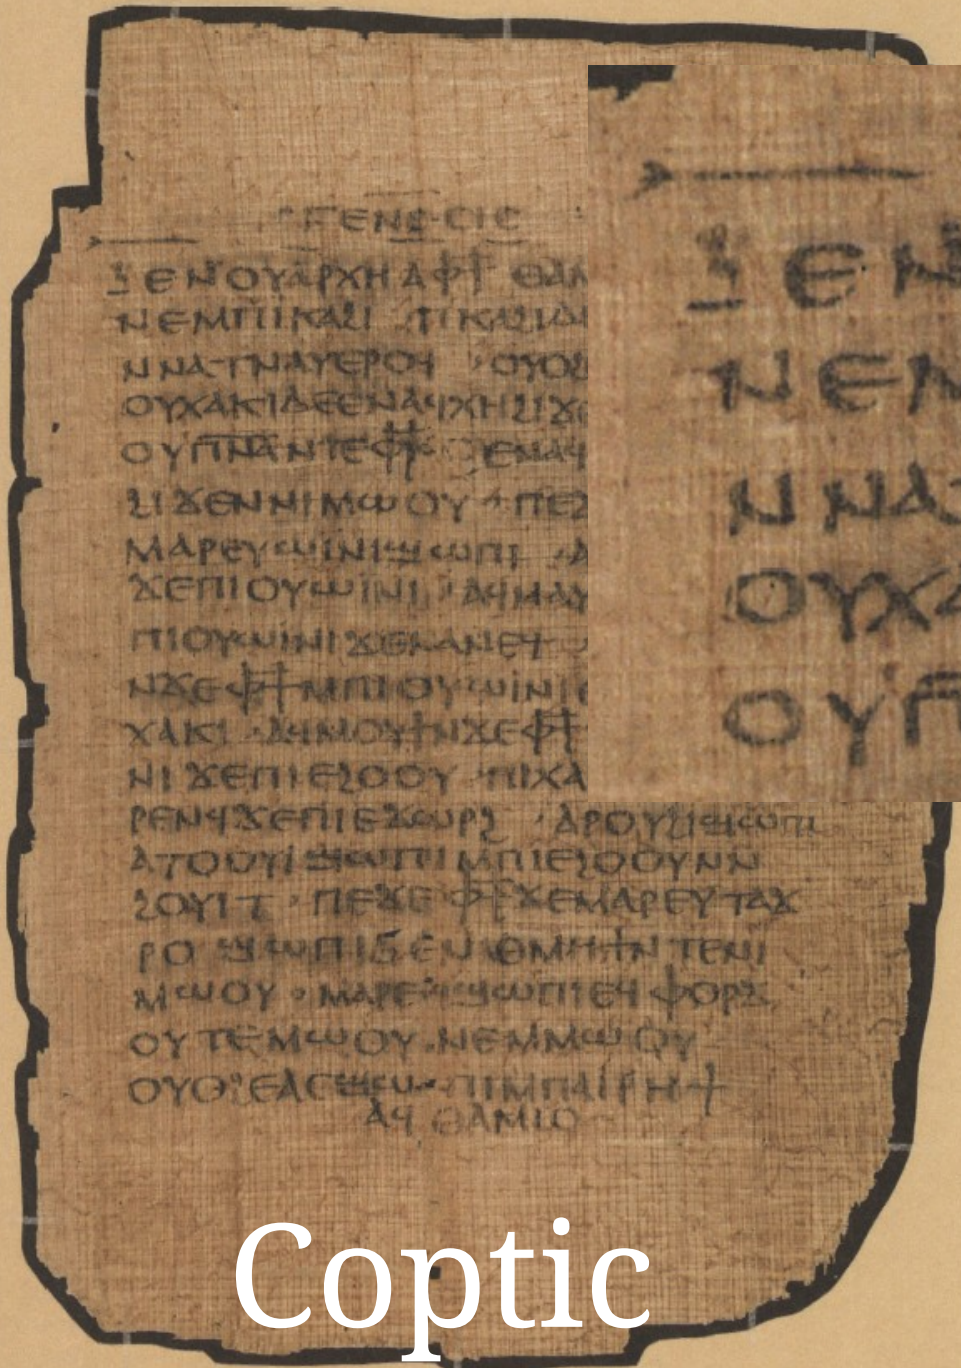 ⲅⲉⲛⲉⲥⲓⲥ
ϧⲉⲛⲟⲩⲁⲣⲭⲏⲁⲫϯ ⲑⲁⲙ
ⲛⲉⲙⲡⲓⲕⲁϩⲓ ⲡⲓⲕⲁϩⲓⲇⲉ
ⲛⲛⲁⲧⲛⲁⲩⲉⲣⲟϥ ⲟⲩⲟϩ
ⲟⲩⲭⲁⲕⲓⲇⲉⲉⲛⲁϥⲭⲏϩⲓϫⲉ
ⲟⲩⲡⲛⲁⲛⲧⲉⲫϯ ⲉⲛⲁϥ
ϩⲓϫⲉⲛⲛⲓⲙⲱⲟⲩ ⲡⲉϫ
ⲙⲁⲣⲉⲩⲱⲓⲛⲓϣⲱⲡⲓ ⲁ
ϫⲉⲡⲓⲟⲩⲱⲓⲛⲓ ⲁϥⲛⲁⲩ
ⲡⲓⲟⲩⲱⲓⲛⲓϫⲉⲛⲁⲛⲉϥ
ⲛϫⲉⲫϯⲙⲡⲓⲟⲩⲱⲓⲛⲓ
ⲭⲁⲕⲓ ⲁϥⲙⲟⲩϯⲛϫⲉⲫϯ
ⲛⲓ ϫⲉⲡⲓⲉϩⲟⲟⲩ ⲡⲓⲭⲁ
ⲣⲉⲛϥϫⲉⲡⲓⲉϫⲱⲣϩ ⲁⲣⲟⲩϩⲓϣⲱⲡⲓ
ⲁⲧⲟⲟⲩⲓϣⲱⲡⲓⲙⲡⲓⲉϩⲟⲟⲩⲛⲛ
ϩⲟⲩⲓⲧ ⲡⲉϫⲉ ⲫϯϫⲉⲙⲁⲣⲉⲩⲧⲁϫ
ⲣⲟ ϣⲱⲡⲓϧⲉⲛ ⲑⲙⲏϯⲛⲧⲉⲛⲓ
ⲙⲱⲟⲩ ⲙⲁⲣⲉϥϣⲱⲡⲓⲉϥⲫⲟⲣϫ
ⲟⲩⲧⲉⲙⲱⲟⲩ ⲛⲉⲙⲙⲱⲟⲩ
ⲟⲩⲟϩⲉⲁⲥϣⲱ ⲡⲓⲙⲡⲁⲓⲣⲏϯ
ⲁϥ ⲑⲁⲙⲓⲟ
ϧⲉⲛ
ⲛⲉⲙ
ⲛⲛⲁⲧ
ⲟⲩⲭⲁ
ⲟⲩⲡ
Coptic